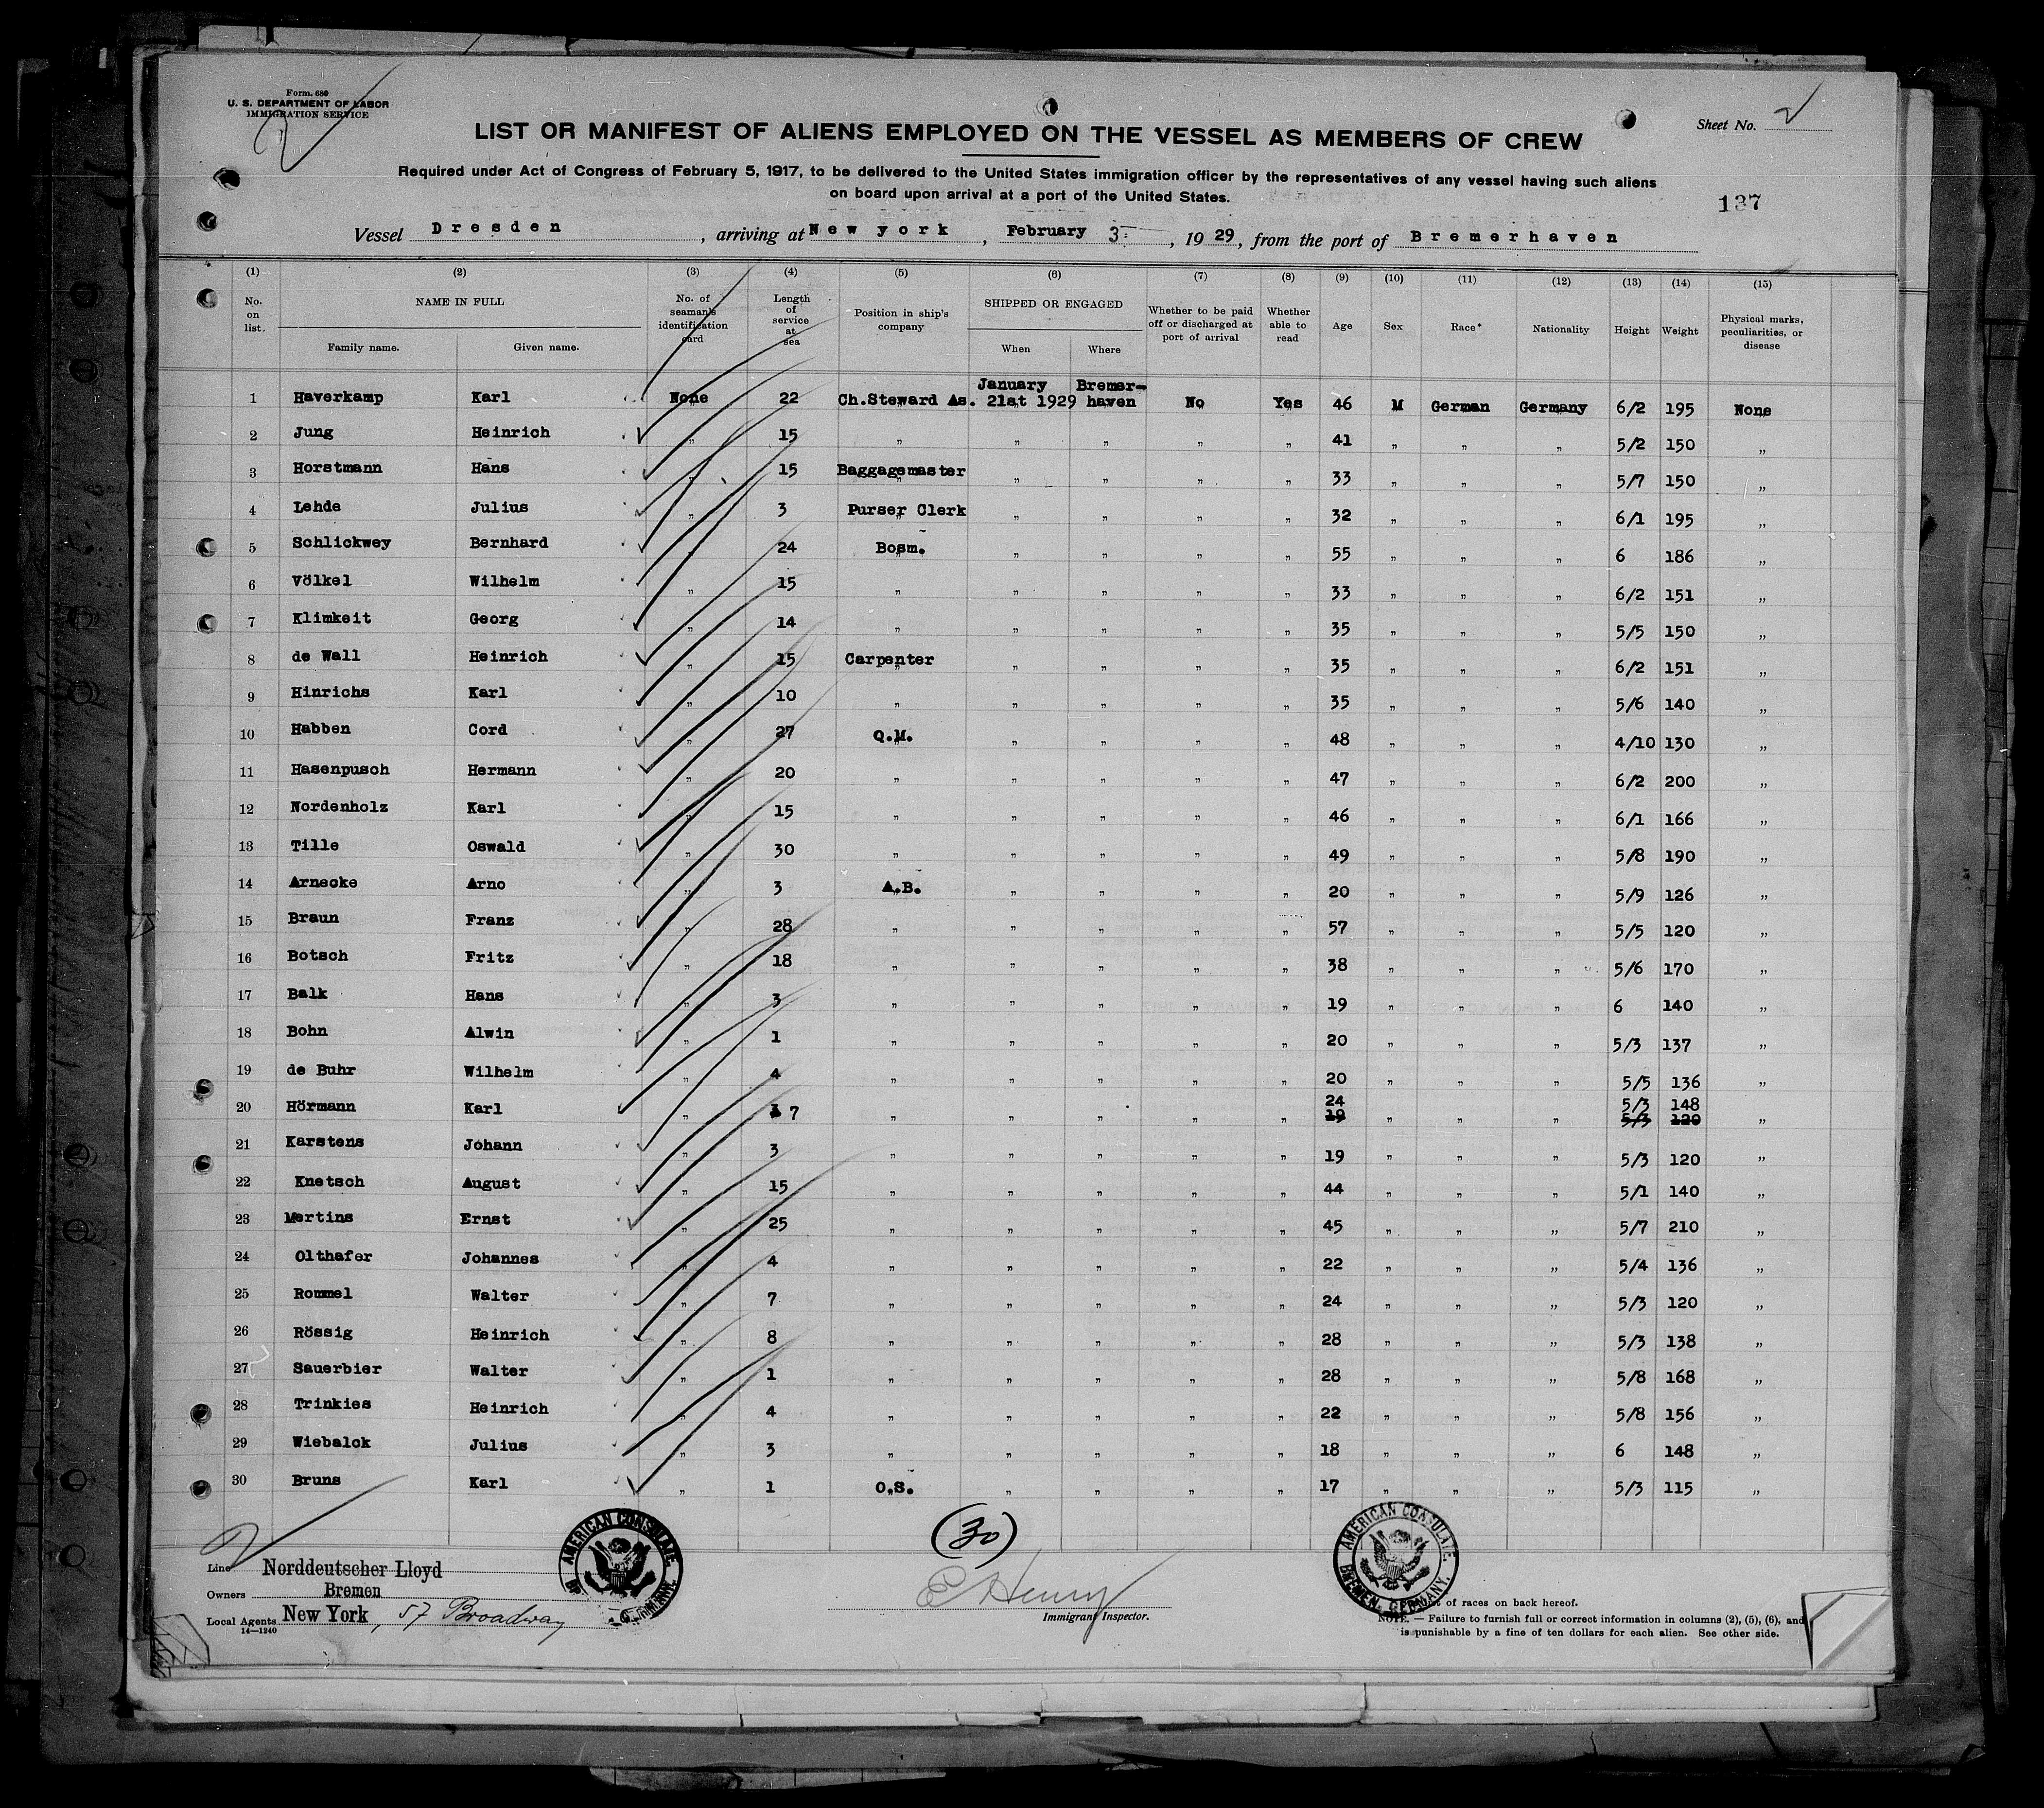 Form. 680
U. S. DEPARTMENT OF LABOR
IMMIGRATION SERVICE
2
Sheet No. 2
LIST OR MANIFEST OF ALIENS EMPLOYED ON THE VESSEL AS MEMBERS OF CREW
Required under Act of Congress of February 5, 1917, to be delivered to the United States immigration officer by the representatives of any vessel having such aliens
on board upon arrival at a port of the United States.
137
Vessel Dresden, arriving at New york, February 3, 1929, from the port of Bremerhaven
(1) (2) (3) (4) (5) (6) (7) (8) (9) (10) (11) (12) (13) (14) (15)
No. on list. NAME IN FULL Family name. Given name. No. of seaman's identification card Length of service at sea Position in ship's company SHIPPED OR ENGAGED When Where Whether to be paid off or discharged at port of arrival Whether able to read Age Sex Race* Nationality Height Weight Physical marks, peculiarities, or disease
1 Haverkamp Karl None 22 Ch.Steward As. January 21st 1929 Bremer-haven No Yes 46 M German Germany 6/2 195 None
2 Jung Heinrich " 15 " " " " " 41 " " " 5/2 150 "
3 Horstmann Hans " 15 Baggagemaster " " " " 33 " " " 5/7 150 "
4 Lehde Julius " 3 Purser Clerk " " " " 32 " " " 6/1 195 "
5 Schlickwey Bernhard " 24 Bosm. " " " " 55 " " " 6 186 "
6 Völkel Wilhelm " 15 " " " " " 33 " " " 6/2 151 "
7 Klimkeit Georg " 14 " " " " " 35 " " " 5/5 150 "
8 de Wall Heinrich " 15 Carpenter " " " " 35 " " " 6/2 151 "
9 Hinrichs Karl " 10 " " " " " 35 " " " 5/6 140 "
10 Habben Cord " 27 Q.M. " " " " 48 " " " 4/10 130 "
11 Hasenpusch Hermann " 20 " " " " " 47 " " " 6/2 200 "
12 Nordenholz Karl " 15 " " " " " 46 " " " 6/1 166 "
13 Tille Oswald " 30 " " " " " 49 " " " 5/8 190 "
14 Arnecke Arno " 3 A.B. " " " " 20 " " " 5/9 126 "
15 Braun Franz " 28 " " " " " 57 " " " 5/5 120 "
16 Botsch Fritz " 18 " " " " " 38 " " " 5/6 170 "
17 Balk Hans " 3 " " " " " 19 " " " 6 140 "
18 Bohn Alwin " 1 " " " " " 20 " " " 5/3 137 "
19 de Buhr Wilhelm " 4 " " " " " 20 " " " 5/5 136 "
20 Hörmann Karl " 7 " " " " " 24 19 " " " 5/3 5/3 148 120 "
21 Karstens Johann " 3 " " " " " 19 " " " 5/3 120 "
22 Knetsch August " 15 " " " " " 44 " " " 5/1 140 "
23 Mertins Ernst " 25 " " " " " 45 " " " 5/7 210 "
24 Olthafer Johannes " 4 " " " " " 22 " " " 5/4 136 "
25 Rommel Walter " 7 " " " " " 24 " " " 5/3 120 "
26 Rössig Heinrich " 8 " " " " " 28 " " " 5/3 138 "
27 Sauerbier Walter " 1 " " " " " 28 " " " 5/8 168 "
28 Trinkies Heinrich " 4 " " " " " 22 " " " 5/8 156 "
29 Wiebalck Julius " 3 " " " " " 18 " " " 6 148 "
30 Bruns Karl " 1 O.S. " " " " 17 " " " 5/3 115 "
(30)
2
Line Norddeutscher Lloyd
Owners Bremen
Local Agents New York, 57 Broadway
14—1240
AMERICAN CONSULATE
E Henry
Immigrant Inspector.
AMERICAN CONSULATE. BREMEN, GERMANY.
of races on back hereof.
NOTE. — Failure to furnish full or correct information in columns (2), (5), (6), and
is punishable by a fine of ten dollars for each alien. See other side.